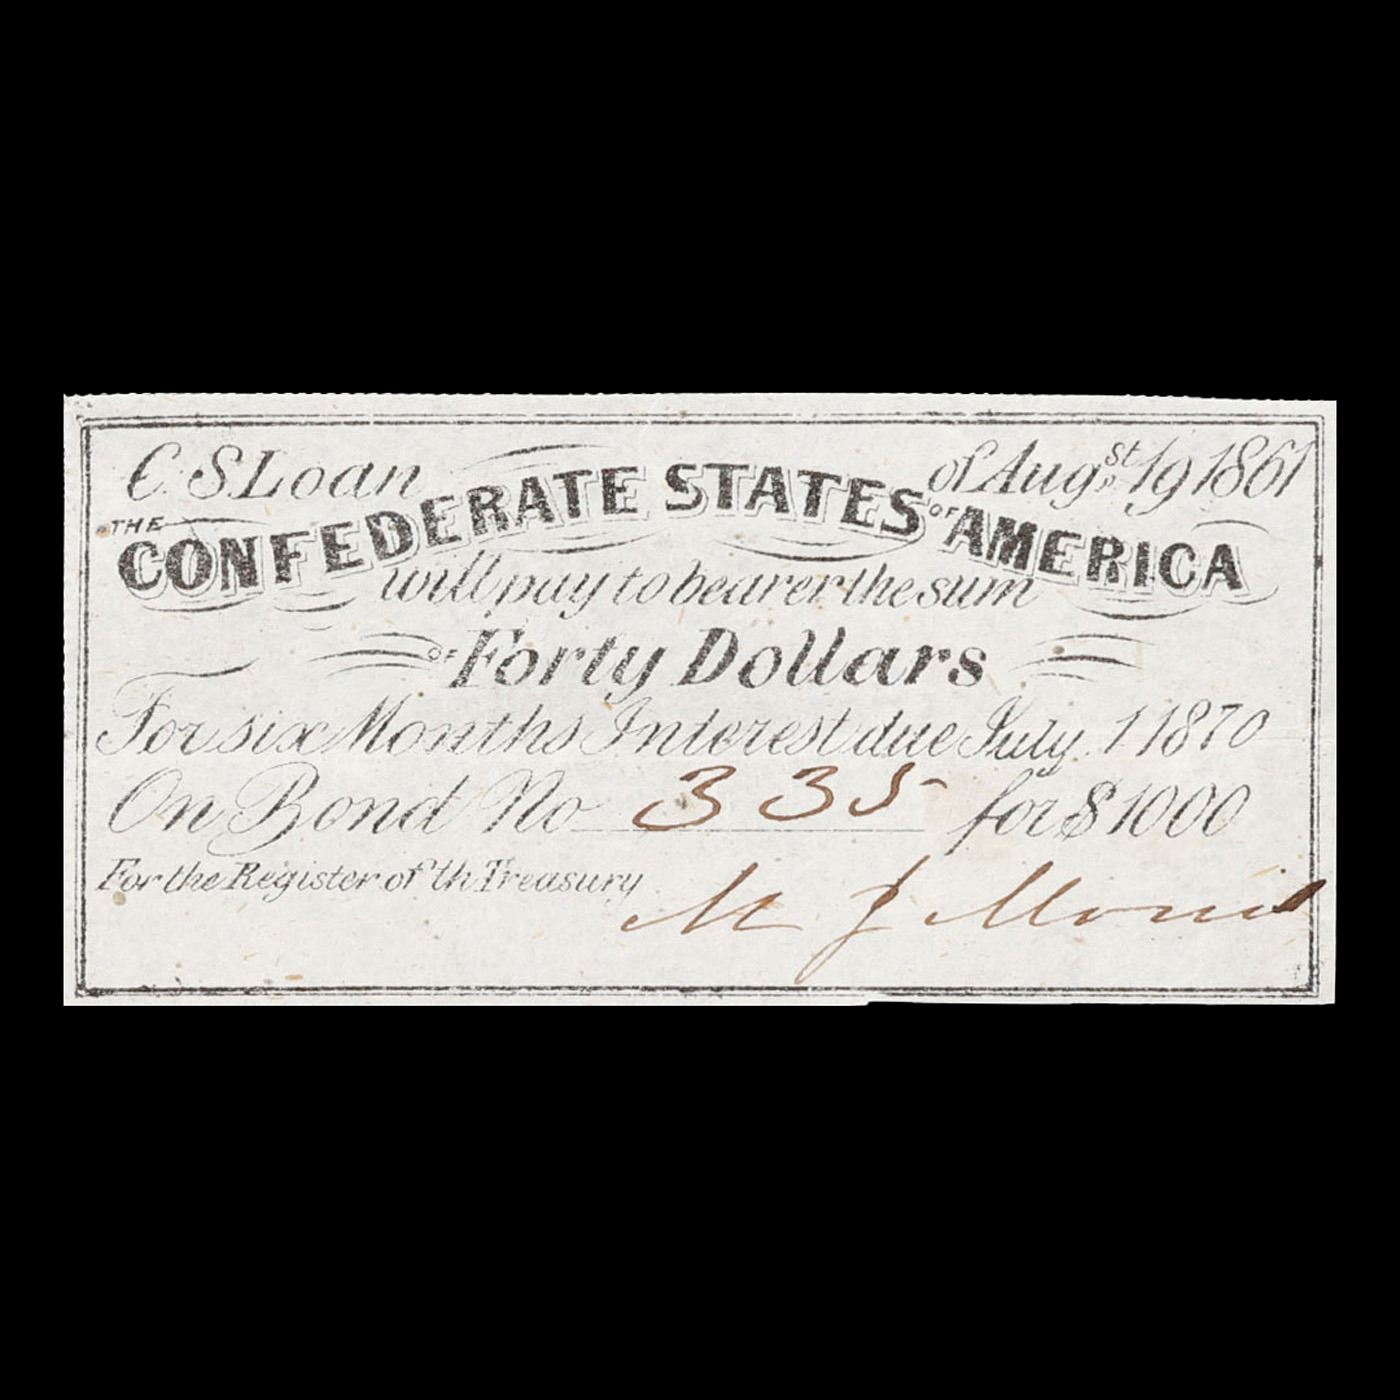 C. S Loan of Augst 19 1861
THE CONFEDERATE STATES OF AMERICA
will pay to bearer the sum
OF Forty Dollars
For six Months Interest due July 1 1870
On Bond No 335 for $1000
For the Register of th Treasury
M J